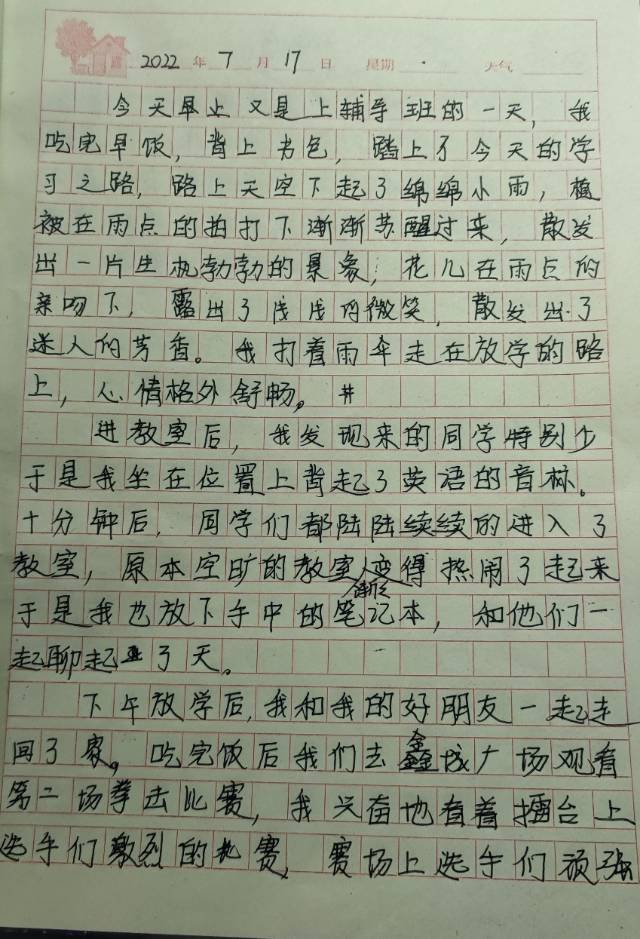 2022 年 7 月 17 日 星期 . 天气
今天早上又是上辅导班的一天，我
吃完早饭，背上书包，踏上了今天的学
习之路，路上天空下起了绵绵小雨，植
被在雨点的拍打下渐渐苏醒过来，散发
出一片生机勃勃的景象，花儿在雨点的
亲吻下，露出了浅浅的微笑，散发出了
迷人的芳香。我打着雨伞走在放学的路
上，心情格外舒畅。#
进教室后，我发现来的同学特别少
于是我坐在位置上背起了英语的音标。
十分钟后，同学们都陆陆续续的进入了
教室，原本空旷的教室渐渐变得热闹了起来
于是我也放下手中的笔记本，和他们一
起聊起了天。
下午放学后，我和我的好朋友一起走
回了家。吃完饭后我们去鑫城广场观看
第二场拳击比赛，我兴奋地看着擂台上
选手们激烈的比赛，赛场上选手们顽强